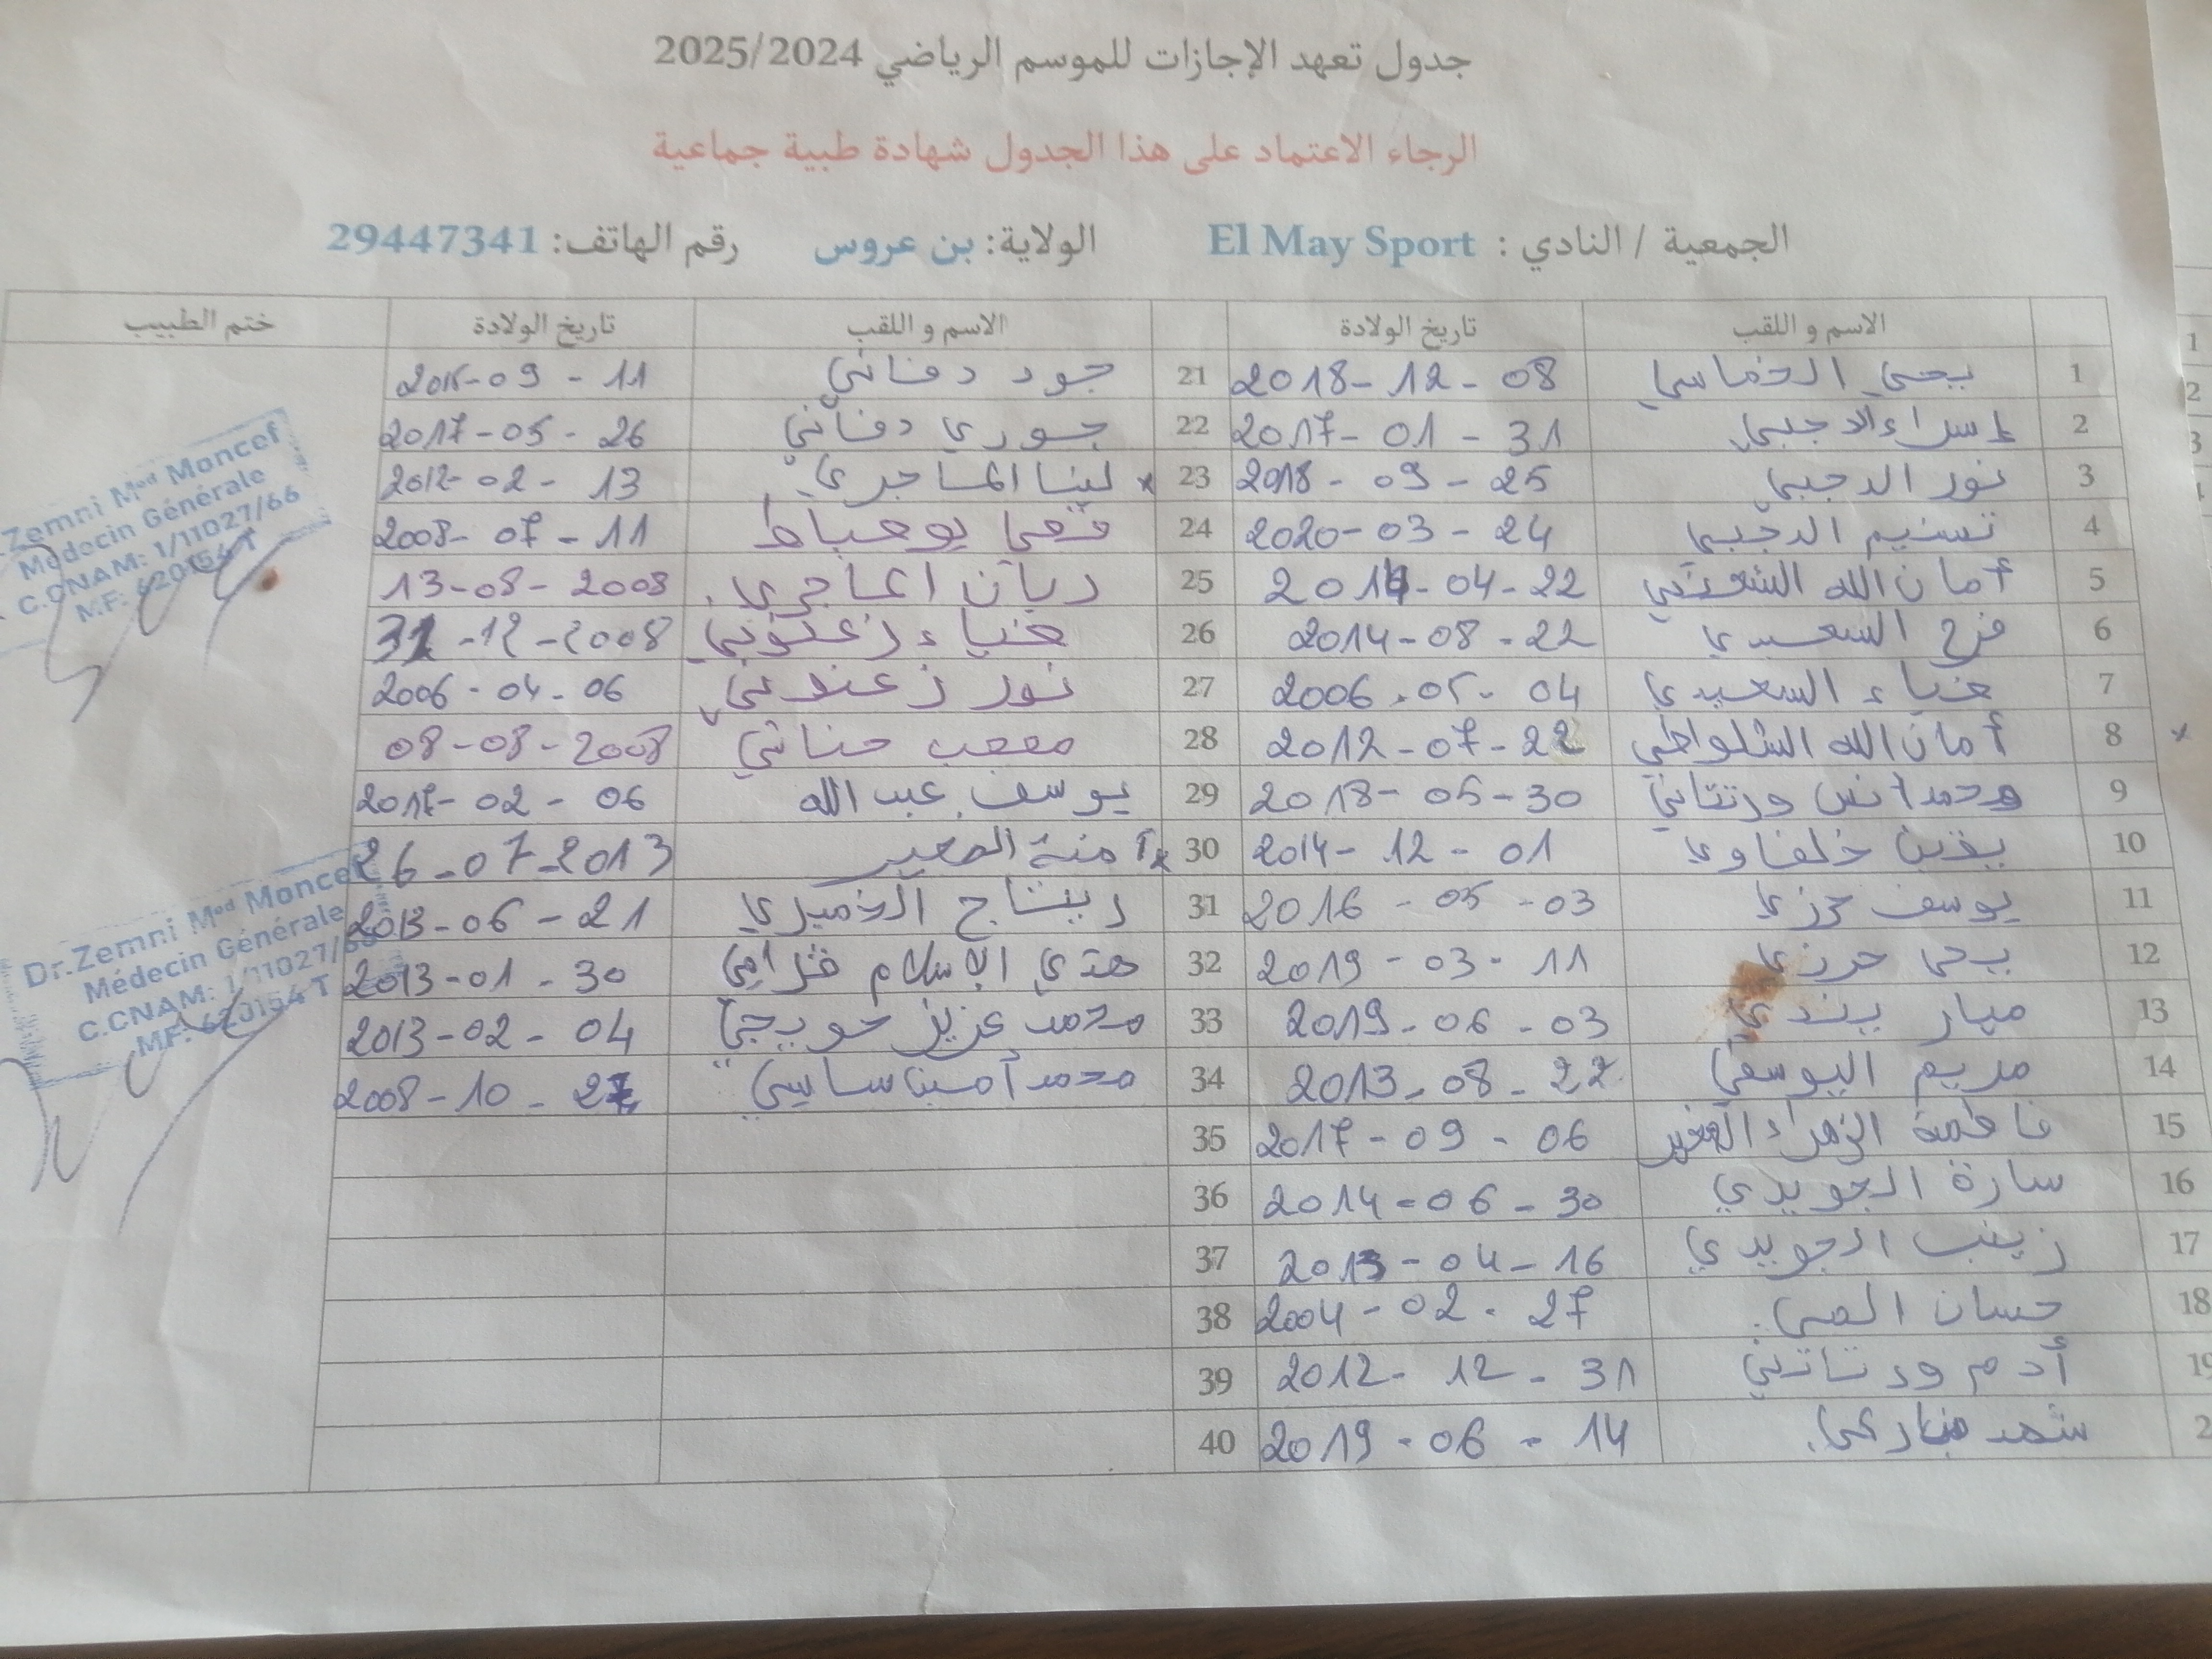 جدول تعهد الإجازات للموسم الرياضي 2025/2024
الرجاء الاعتماد على هذا الجدول شهادة طبية جماعية
الجمعية / النادي : El May Sport الولاية: بن عروس رقم الهاتف: 29447341
الاسم و اللقب تاريخ الولادة الاسم و اللقب تاريخ الولادة ختم الطبيب
1 يحيى الخماسي 2018-12-08 21 جود دفاني 11-09-
2 إسراء الدجبي 2017-01-31 22 جوري دفاني 2017-05-26
3 نور الدجبي 2018-09-25 23 لينا الماجري 2012-02-13
4 تسنيم الدجبي 2020-03-24 24 2008-07-11
5 أمان الله 2014-04-22 25 ريان الماجري 13-08-2008
6 فرح السعيدي 2014-08-22 26 ضياء زغنوني 31-12-2008
7 ضياء السعيدي 2006-05-04 27 نور زغنوني 2006-04-06
8 أمان الله الشلواطي 2012-07-22 28 مصعب حناني 08-08-2008
9 محمد أنس ورتتاني 2018-05-30 29 يوسف عبد الله 2017-02-06
10 يقين خلفاوي 2014-12-01 30 آمنة 26-07-2013
11 يوسف حرزي 2016-05-03 31 ريتاج الخميري 2013-06-21
12 يحي حرزي 2019-03-11 32 هدى الإسلام 2013-01-30
13 ميار 2019-06-03 33 محمد عزيز حويجي 2013-02-04
14 مريم اليوسفي 2013-08-22 34 محمد أمين ساسي 2008-10-
15 فاطمة الزهراء 2017-09-06 35
16 سارة الجويدي 2014-06-30 36
17 زينب الجويدي 2013-04-16 37
18 حسان 2004-02-27 38
19 أدم ورتاتني 2012-12-31 39
2 شهد 2019-06-14 40
Zemni Med Moncef
Médecin Générale
C.CNAM: 1/11027/66
M.F: 620154 T
Dr.Zemni Med Moncef
Médecin Générale
C.CNAM: 1/11027/66
MF: 620154 T